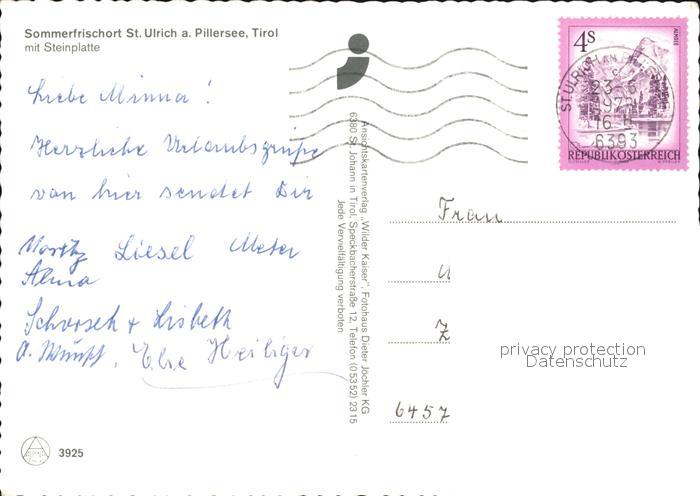 Sommerfrischort St. Ulrich a. Pillersee, Tirol
mit Steinplatte
Liebe Minna!
Herzliche Urlaubsgrüße
von hier sendet Dir
Moritz Liesel Meter
Alma
Schorsch + Lisbeth
Else Heiliger
3925
Ansichtskartenverlag „Wilder Kaiser", Fotohaus Dieter Jöchler KG
6380 St. Johann in Tirol, Speckbacherstraße 12, Telefon (05352) 2315
Jede Vervielfältigung verboten
4S
ALMSEE
ST. ULRICH
6393
REPUBLIK ÖSTERREICH
Frau
U
Z
6457
privacy protection
Datenschutz